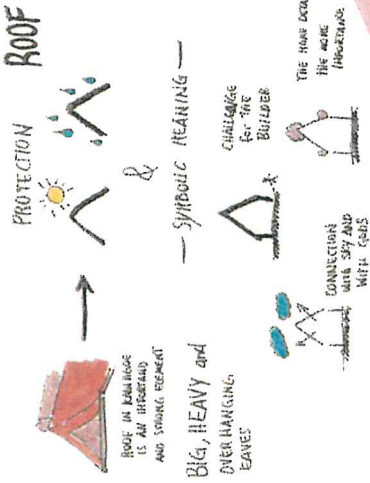 ROOF
PROTECTION
&
— SYMBOLIC MEANING —
ROOF IN
IS AN IMPORTAND
AND STRONG ELEMENT
BIG, HEAVY and
OVERHANGING
EAVES
CONNECTION
WITH SKY AND
WITH GODS
CHALLENGE
for THE
BUILDER
THE MORE
THE MORE
IMPORTANCE